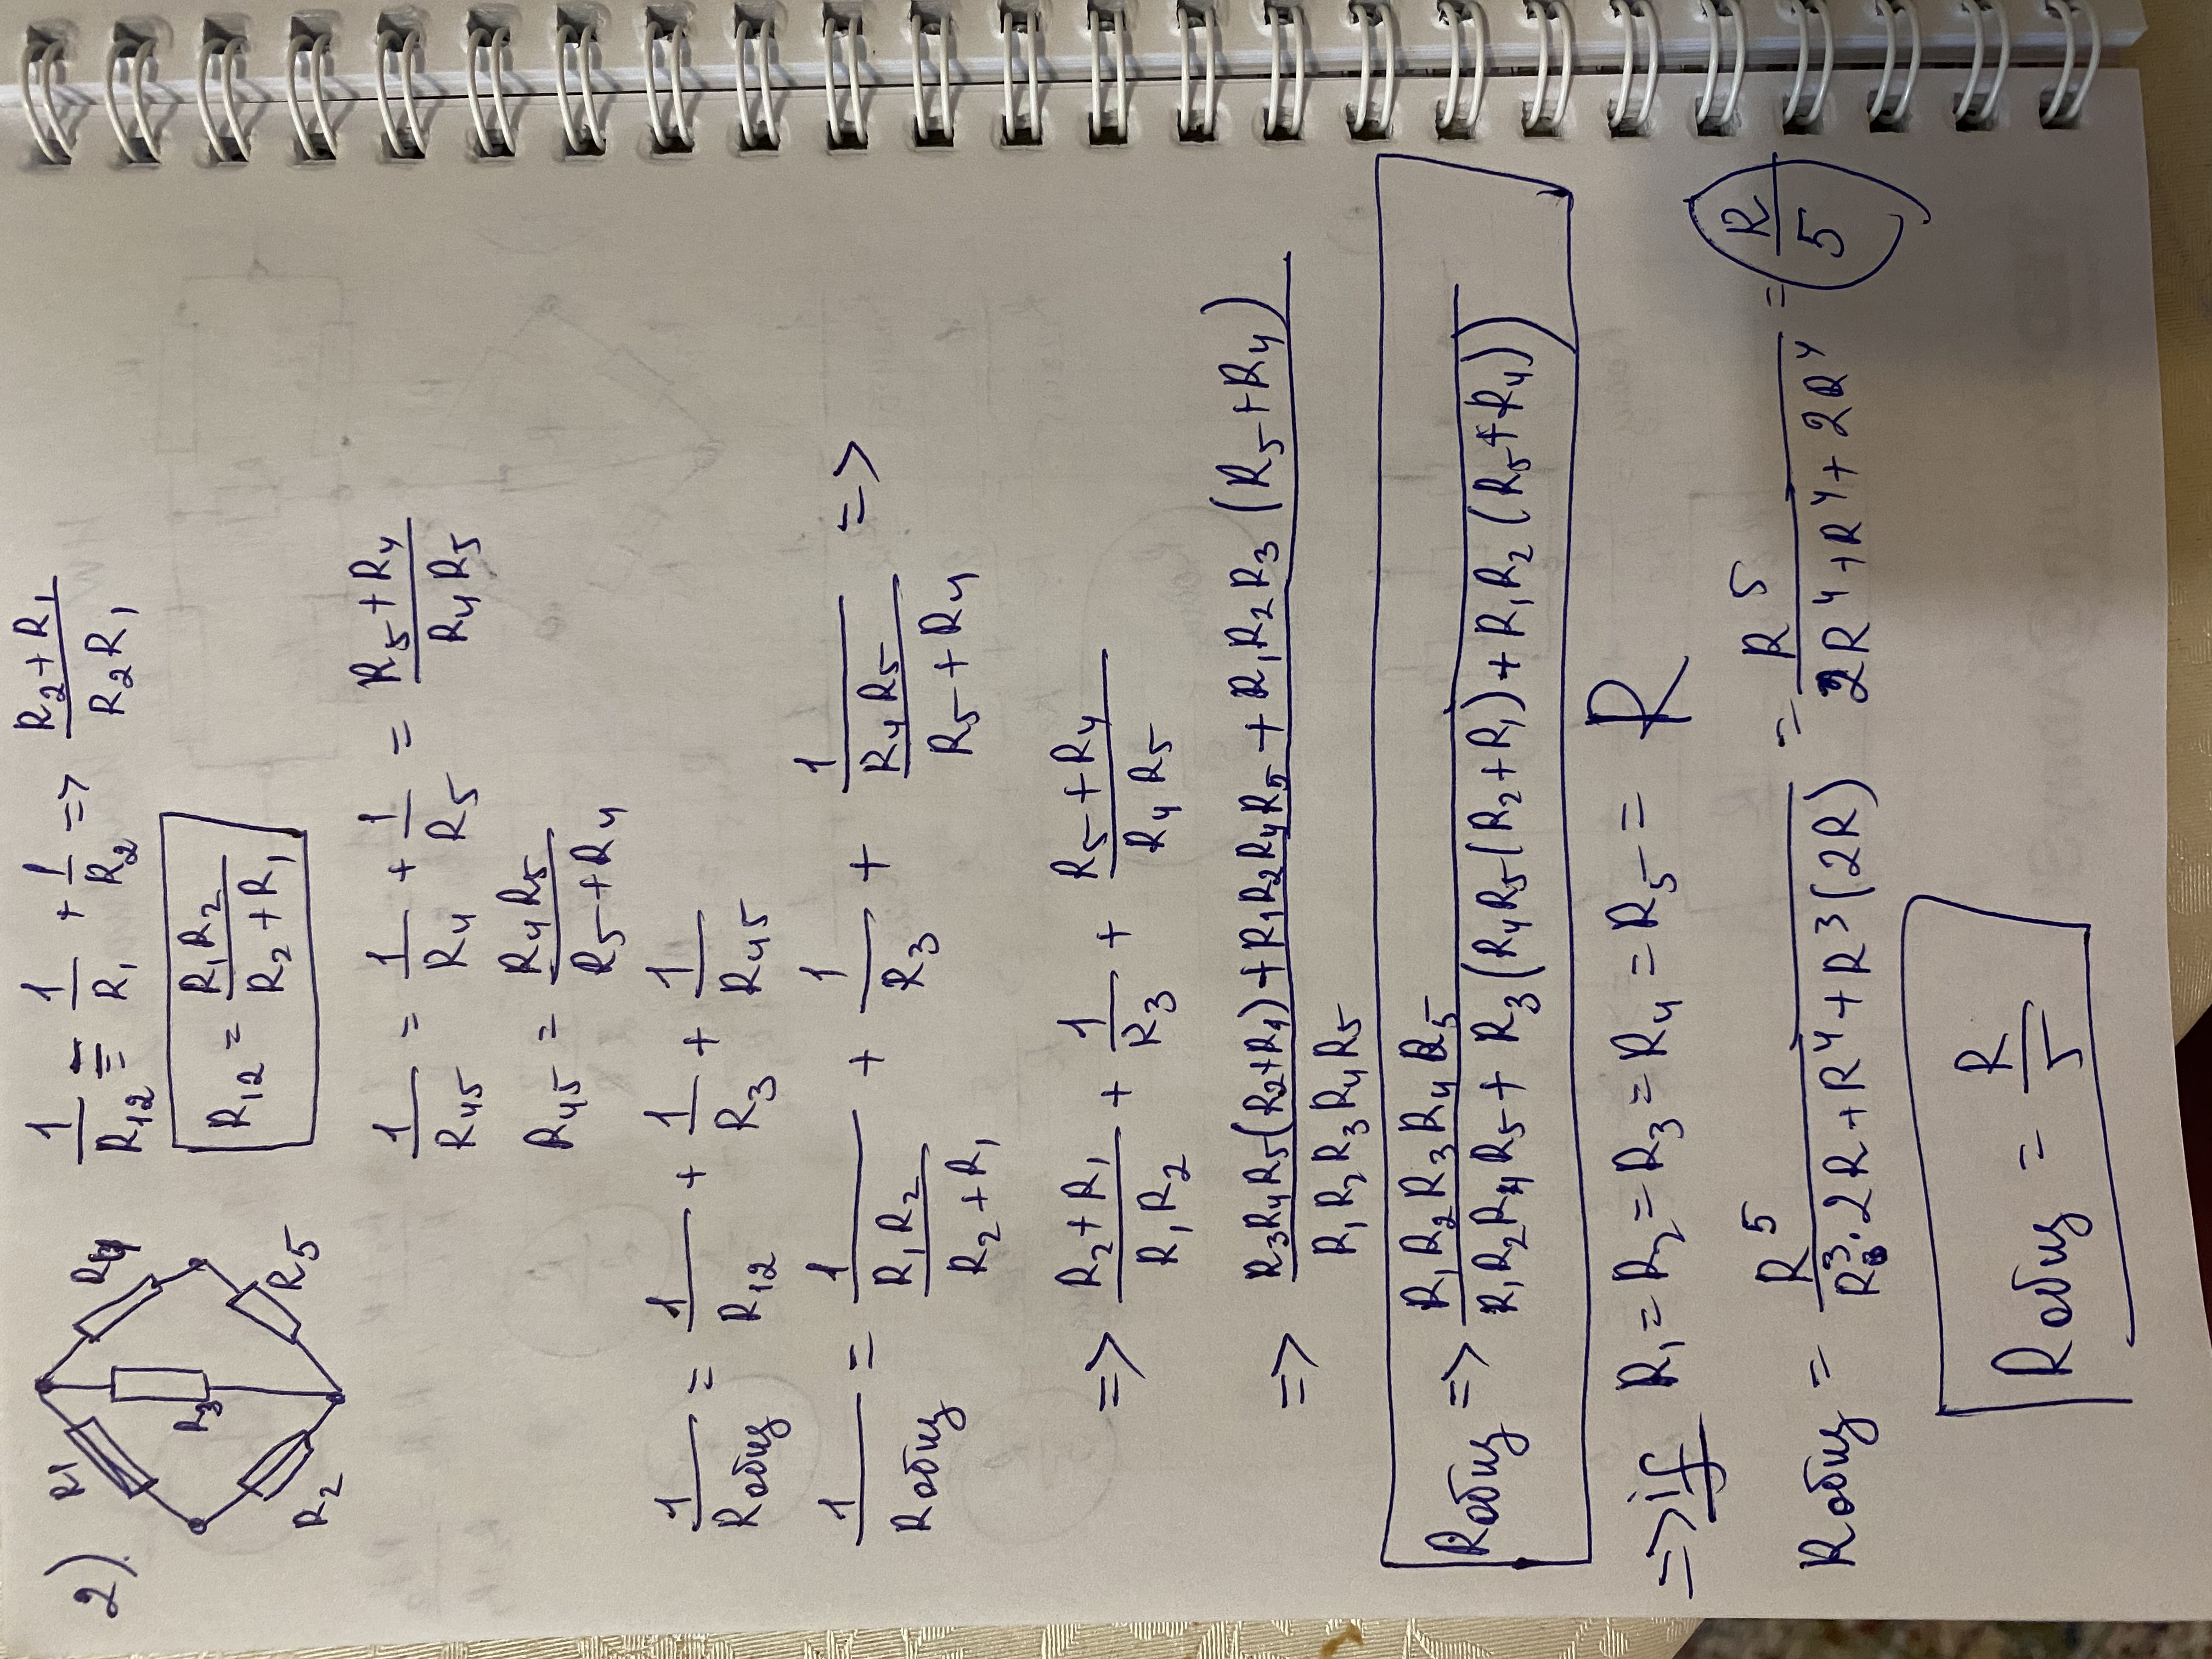 2).
R1
R4
R3
R2
R5
1/R₁₂ = 1/R₁ + 1/R₂ => (R₂+R₁)/(R₂R₁)
R₁₂ = R₁R₂/(R₂+R₁)
1/R₄₅ = 1/R₄ + 1/R₅ = (R₅+R₄)/(R₄R₅)
R₄₅ = R₄R₅/(R₅+R₄)
1/Rобщ = 1/R₁₂ + 1/R₃ + 1/R₄₅
1/Rобщ = 1/(R₁R₂/(R₂+R₁)) + 1/R₃ + 1/(R₄R₅/(R₅+R₄)) =>
=> (R₂+R₁)/(R₁R₂) + 1/R₃ + (R₅+R₄)/(R₄R₅)
=> (R₃R₄R₅(R₂+R₁)+R₁R₂R₄R₅+R₁R₂R₃(R₅+R₄))/(R₁R₂R₃R₄R₅)
Rобщ => R₁R₂R₃R₄R₅/(R₁R₂R₄R₅+R₃(R₄R₅(R₂+R₁)+R₁R₂(R₅+R₄)))
=> if R₁=R₂=R₃=R₄=R₅= R
Rобщ = R⁵/(R³·2R+R⁴+R³(2R)) = R⁵/(2R⁴+R⁴+2R⁴) = R/5
Rобщ = R/5